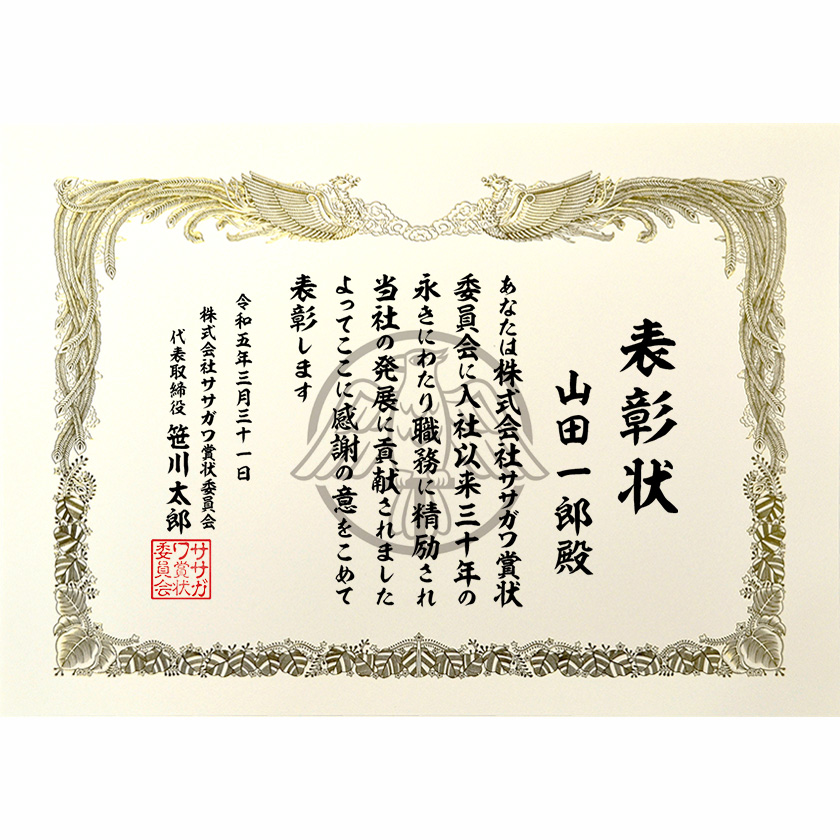 表彰状
山田一郎殿
あなたは株式会社ササガワ賞状
委員会に入社以来三十年の
永きにわたり職務に精励され
当社の発展に貢献されました
よってここに感謝の意をこめて
表彰します
令和五年三月三十一日
株式会社ササガワ賞状委員会
代表取締役 笹川太郎
ササガ
ワ賞状
委員会